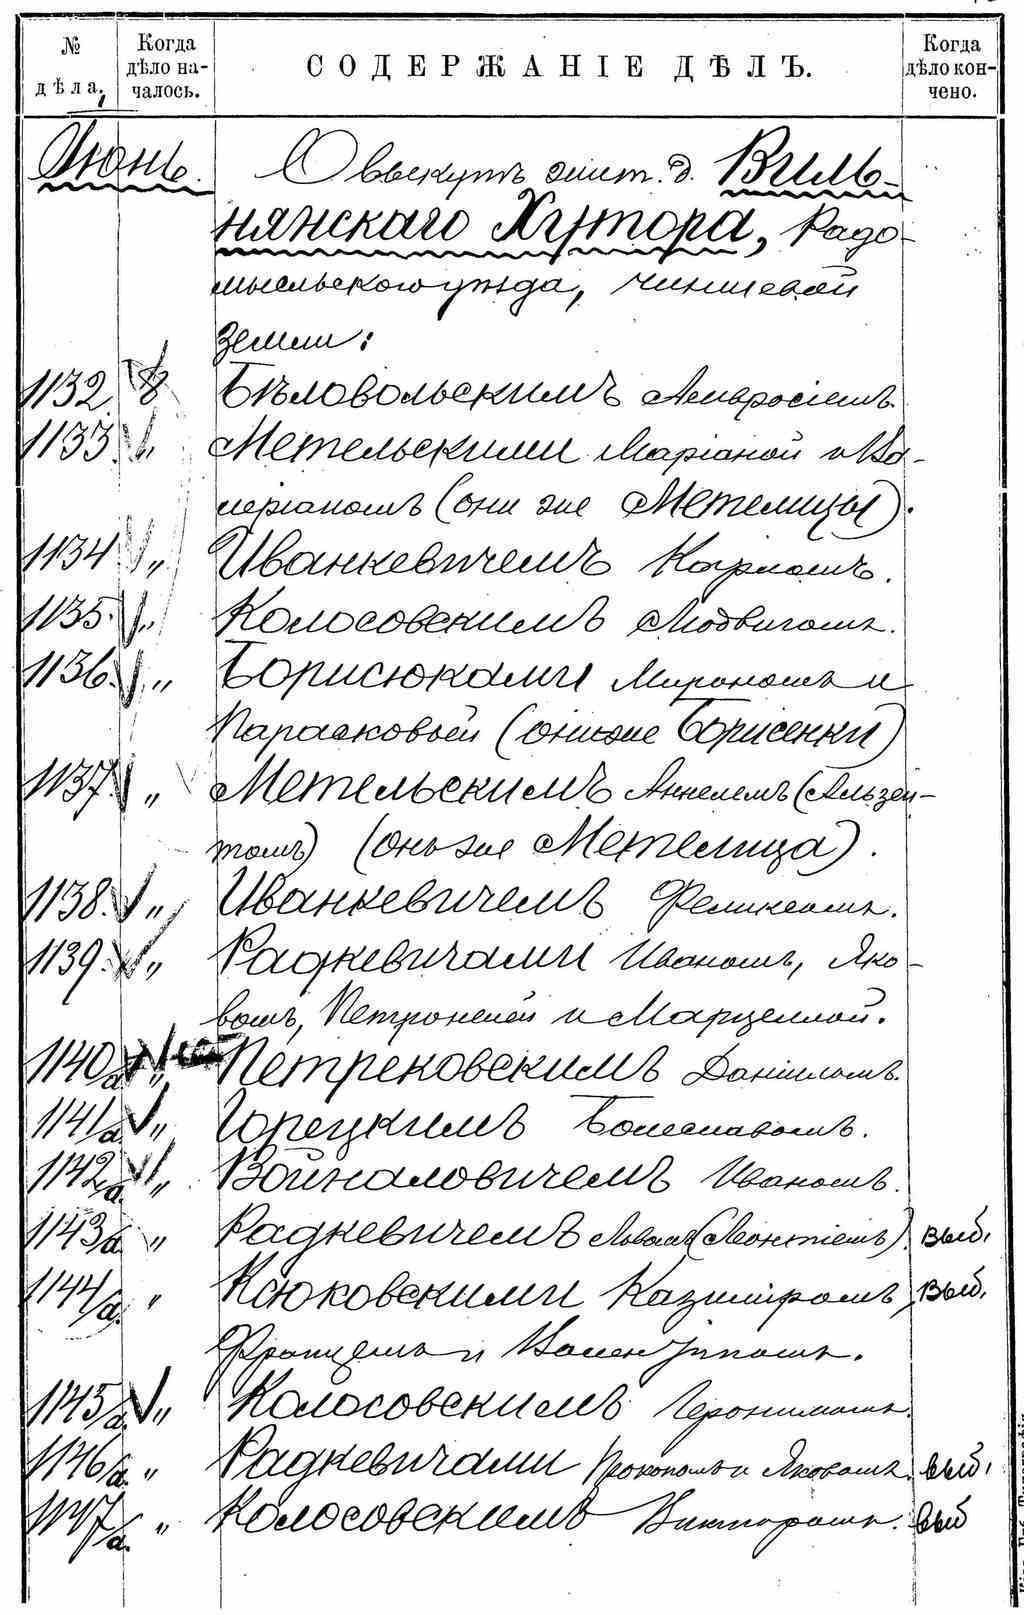 № дѣла.
Когда дѣло началось.
СОДЕРЖАНІЕ ДѢЛЪ.
Когда дѣло кончено.
Июнь. О выкупѣ жит. д. Виль-
нянскаго Хутора, Радо-
мысльского уѣзда, чиншевой
земли:
1132 8 Бѣловольскимъ Амвросіемъ.
1133 „ Метельскими Маріаной и Ва-
леріаномъ (они же Метелицы).
1134 „ Иванкевичемъ Карломъ.
1135 „ Колосовскимъ Людвигомъ.
1136. „ Борисюками Мирономъ и
Парасковьей (они же Борисенки)
1137 „ Метельскимъ Анкелемъ (Альзей-
томъ) (онъ же Метелица).
1138. „ Иванкевичемъ Феликсомъ.
1139. „ Радкевичами Иваномъ, Яко-
вомъ, Петронелей и Марцеллой.
1140/а „ Петрековскимъ Даніиломъ.
1141/а. „ Горецкимъ Болеславомъ.
1142/а. „ Войналовичемъ Иваномъ.
1143/а. „ Радкевичемъ Львомъ (Леонтіемъ). выб.
1144/а. „ Ксюковскими Казиміромъ, выб.
Францемъ и Валентиномъ.
1145/а. „ Колосовскимъ Геронимомъ.
1146/а. „ Радкевичами Прокопомъ и Яковомъ. выб.
1147/а. „ Колосовскимъ Викторомъ. выб